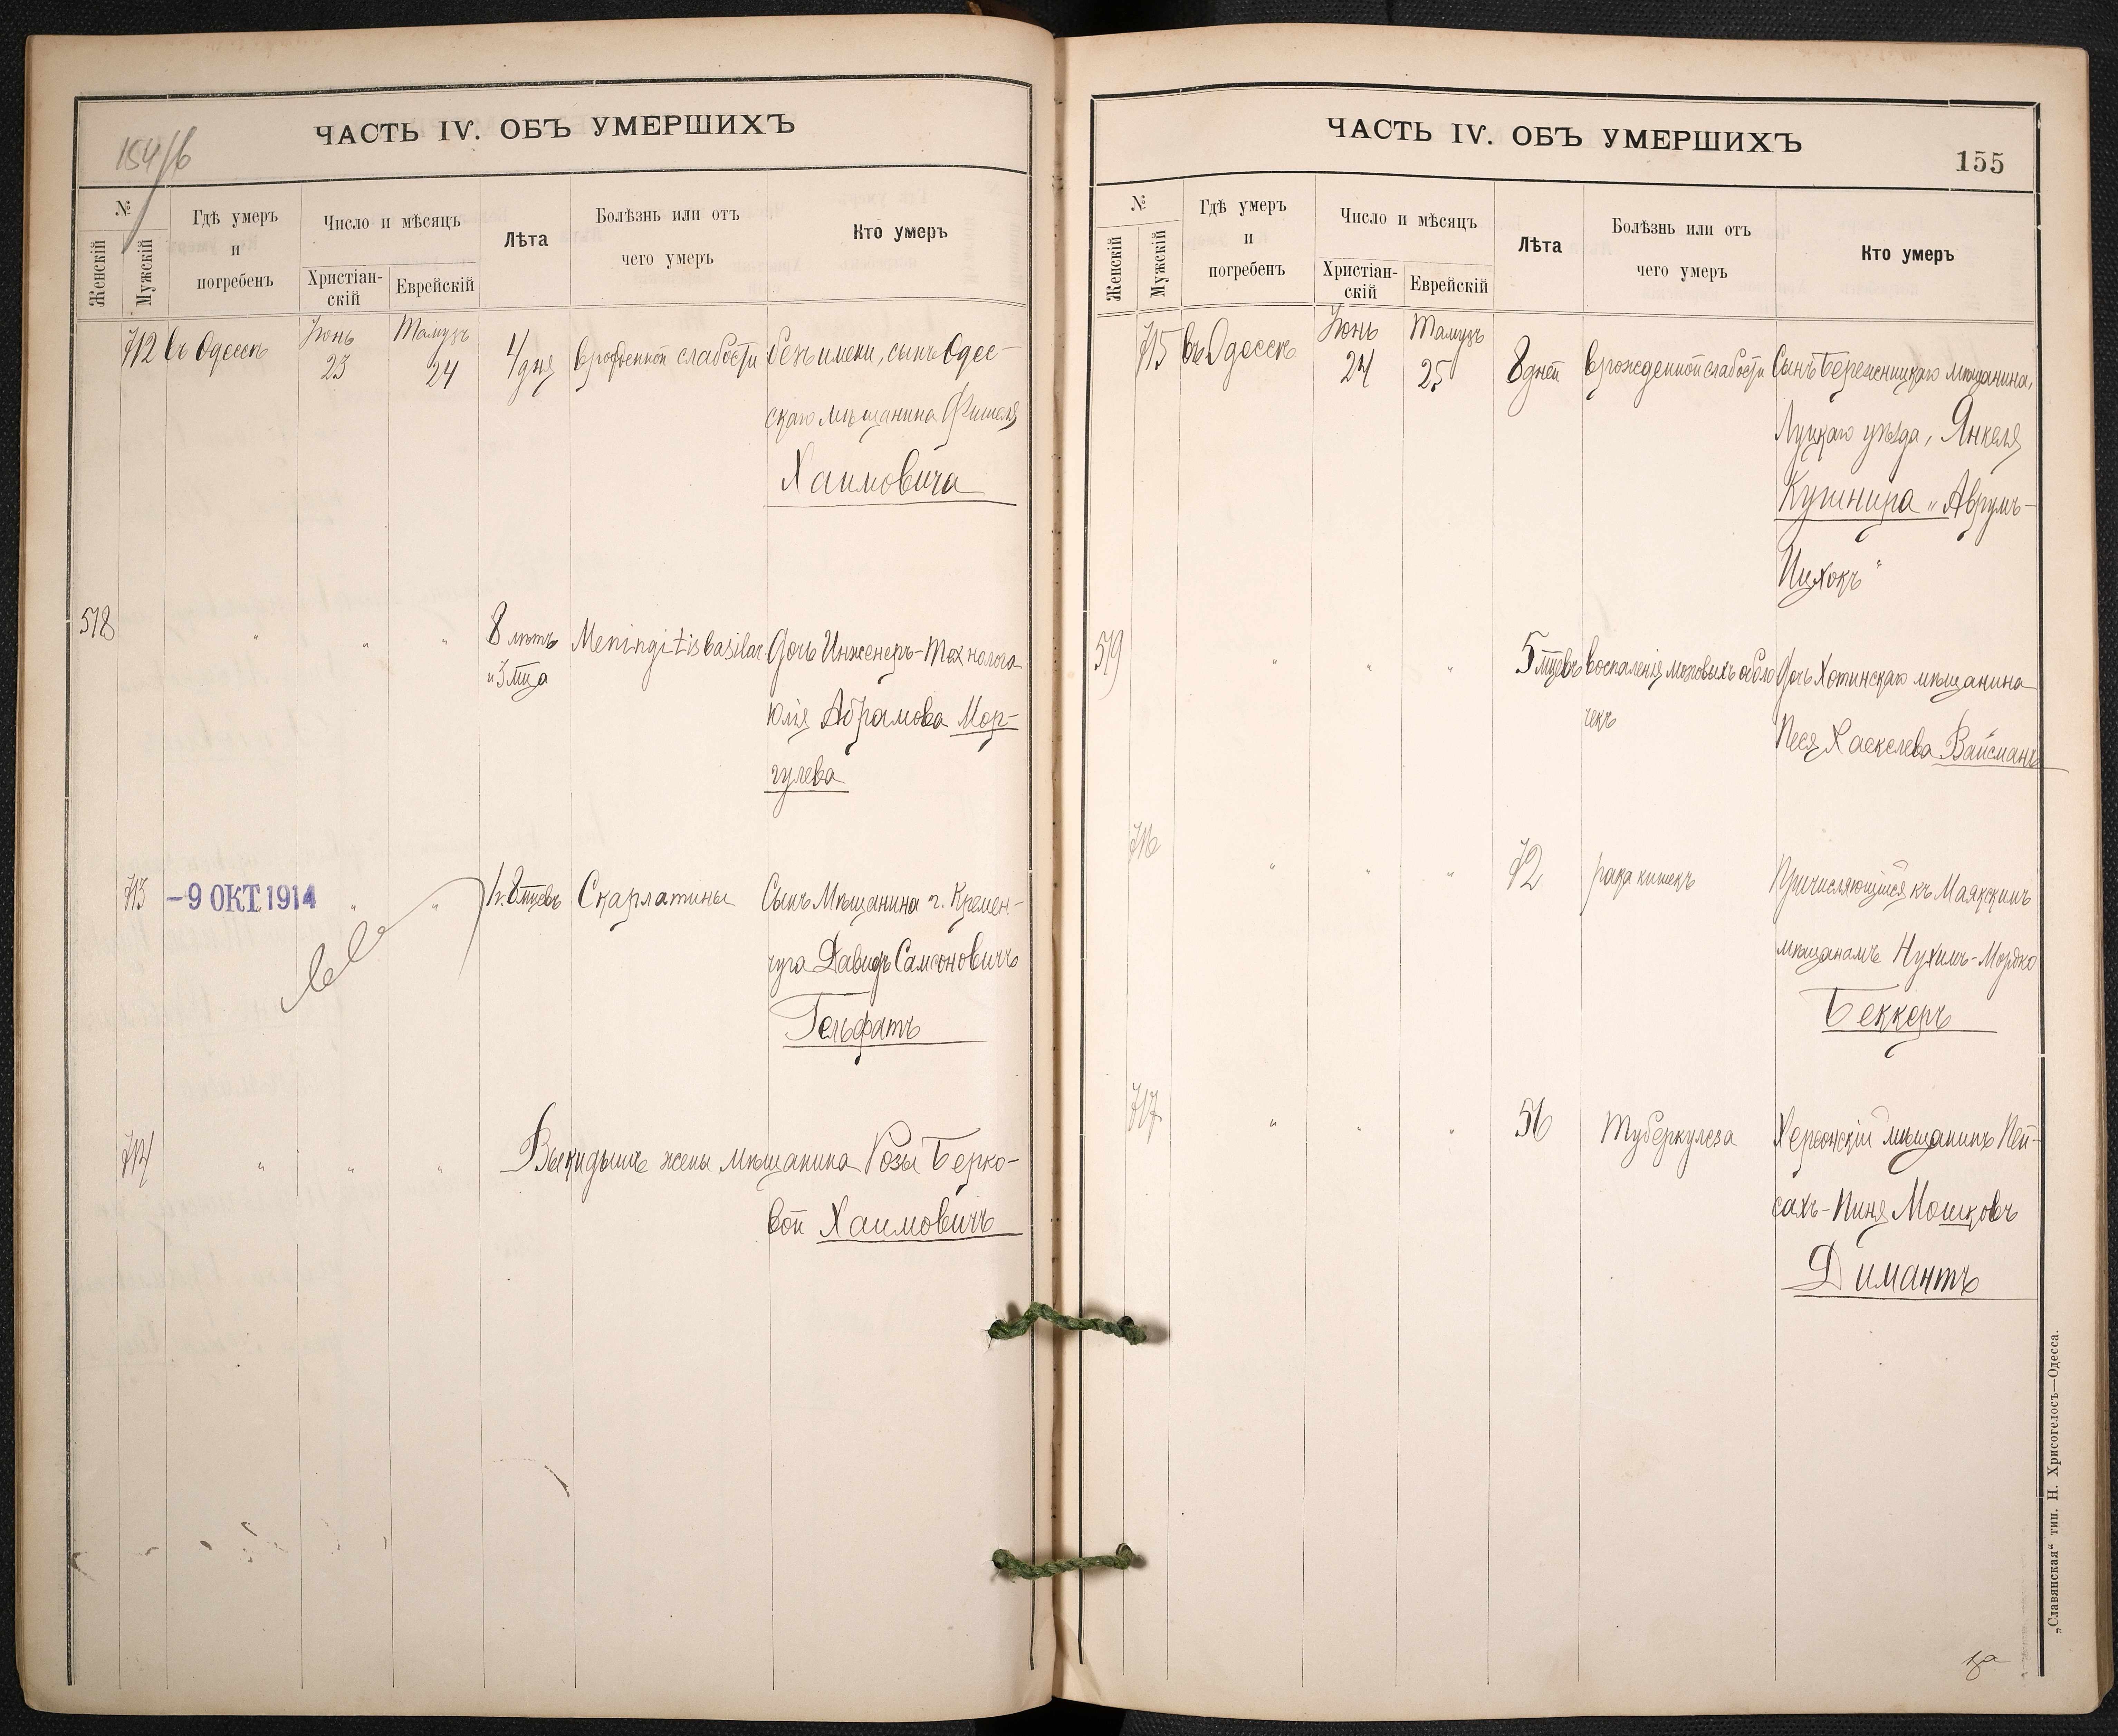 ЧАСТЬ IV. ОБЪ УМЕРШИХЪ
154/б
№
Женскій
Мужскій
Гдѣ умеръ
и
погребенъ
Число и мѣсяцъ
Христіан-
скій
Еврейскій
Лѣта
Болѣзнь или отъ
чего умеръ
Кто умеръ
712 въ Одессѣ Іюнь 23 Тамузъ 24 4 дня врожденной слабости безъ имени, сынъ Одес-
скаго мѣщанина Фишеля
Хаимовича
518 " " " 8 лѣтъ Meningitis basilar Дочь Инженеръ-Технолога
и 3 м-ца Юлія Абрамова Мор-
гулева
713 -9 ОКТ 1914 " " 8 м-цевъ Скарлатины Сынъ Мѣщанина г. Кремен-
чуга Давидъ Самсоновичъ
Гельфатъ
714 " " " Выкидышъ жены мѣщанина Розы Берко-
вой Хаимовичъ
ЧАСТЬ IV. ОБЪ УМЕРШИХЪ
155
№
Женскій
Мужскій
Гдѣ умеръ
и
погребенъ
Число и мѣсяцъ
Христіан-
скій
Еврейскій
Лѣта
Болѣзнь или отъ
чего умеръ
Кто умеръ
715 въ Одессѣ Іюнь 24 Тамузъ 25 8 дней врожденной слабости Сынъ Бережницкаго мѣщанина,
Луцкаго уѣзда, Янкеля
Кушнира „Аврумъ-
Ицхокъ"
519 " " " 5 м-цевъ воспаленія мозговыхъ оболо Дочь Хотинскаго мѣщанина
чекъ Песя Хаскелева Вайсманъ
716 " " " 72 рака кишекъ Причисляющійся къ Маякскимъ
мѣщанамъ Нухимъ-Мордко
Беккеръ
717 " " " 56 Туберкулеза Херсонскій мѣщанинъ Пей-
сахъ-Пиня Мошковъ
Димантъ
„Славянская“ тип. Н. Хрисогелосъ—Одесса.